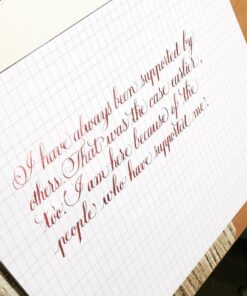 I have always been supported by
others. That was the case earlier,
too! I am here because of the
people who have supported me.